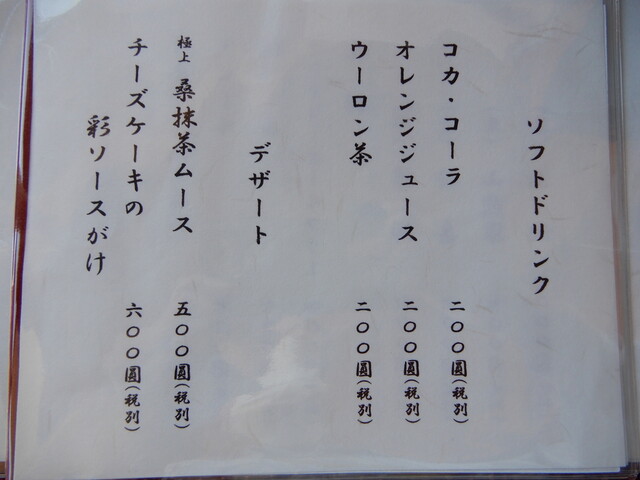 ソフトドリンク
コカ・コーラ 二〇〇圓(税別)
オレンジジュース 二〇〇圓(税別)
ウーロン茶 二〇〇圓(税別)
デザート
極上 桑抹茶ムース 五〇〇圓(税別)
チーズケーキの 六〇〇圓(税別)
彩ソースがけ